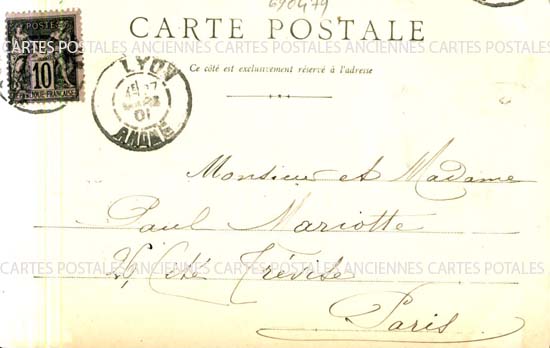 690479
CARTE POSTALE
Ce côté est exclusivement réservé à l'adresse
POSTES
10
REPUBLIQUE FRANÇAISE
LYON
01
RHONE
Monsieur et Madame
Paul Mariotte
Cité Trévise
Paris
CARTES POSTALES ANCIENNES CARTES POSTALES ANCIENNES CARTES POTALES
CARTES POSTALES ANCIENNES CARTES POSTALES ANCIENNES CARTES POTALES